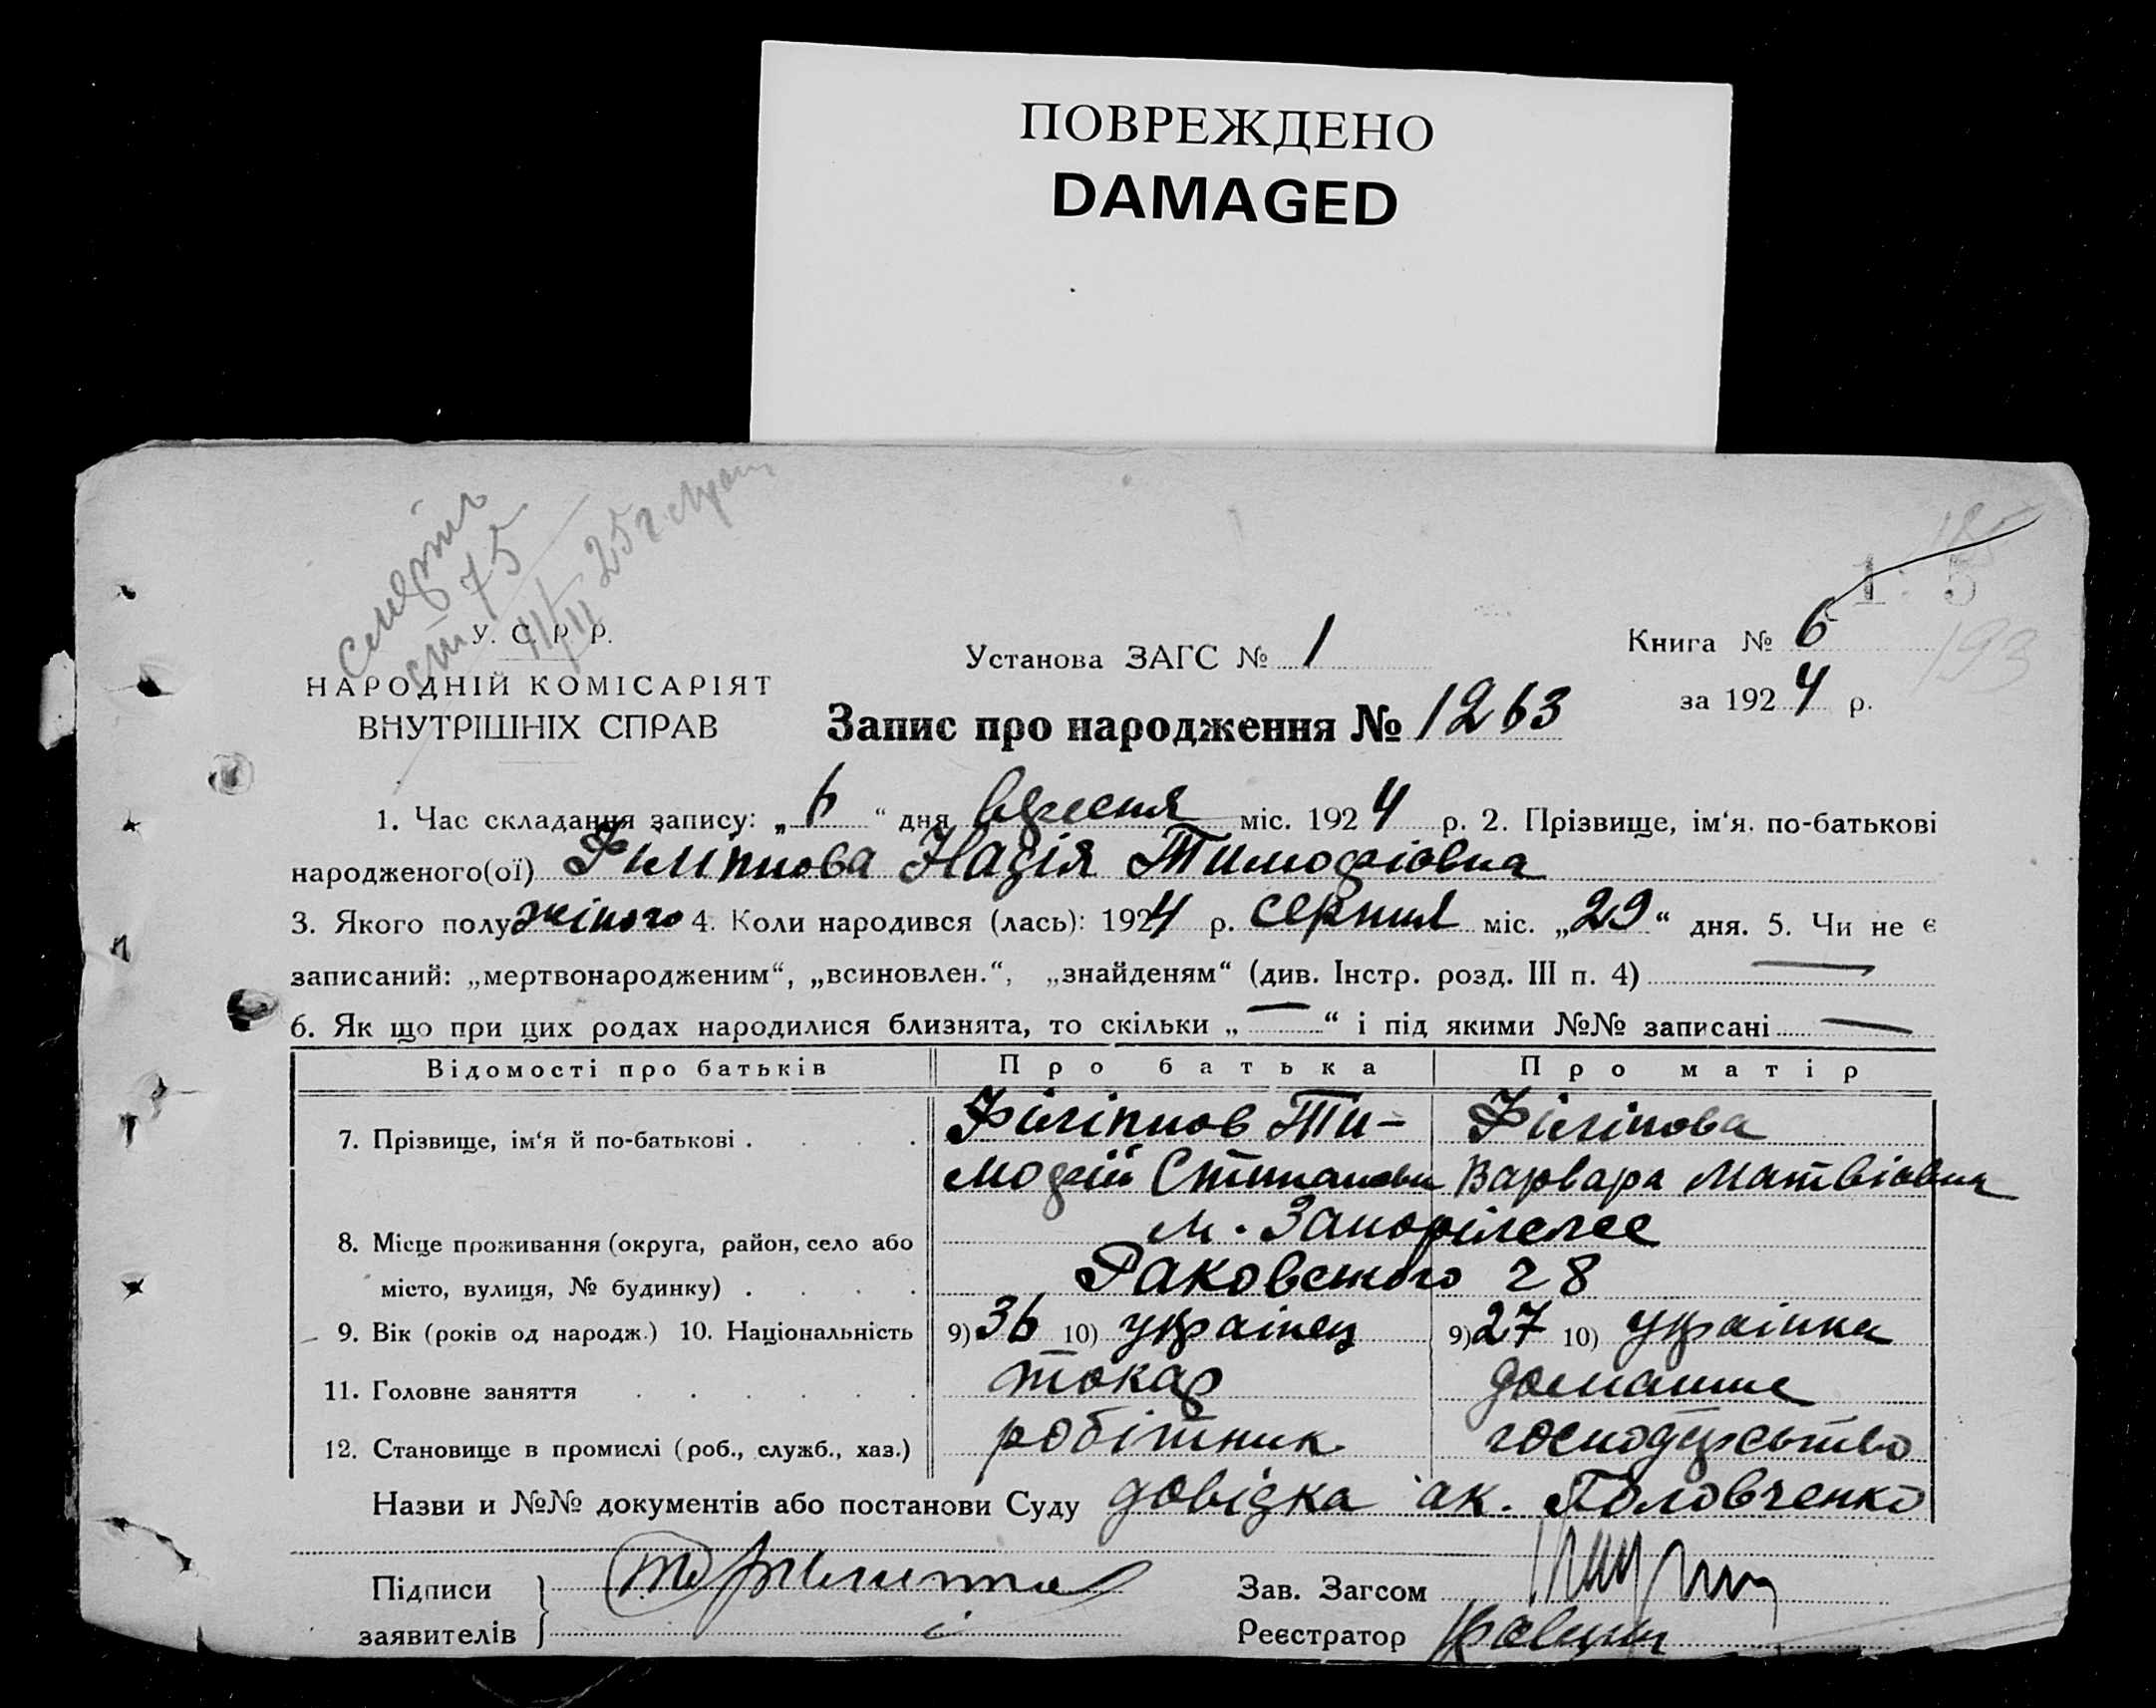 ПОВРЕЖДЕНО
DAMAGED
смерть
75
11/II 25 г.
У. С. Р. Р.
НАРОДНІЙ КОМІСАРІЯТ
ВНУТРІШНІХ СПРАВ
Установа ЗАГС № 1
Книга № 6
за 1924 р.
193
Запис про народження № 1263
1. Час складання запису: „6“ дня вересня міс. 1924 р. 2. Прізвище, ім‘я, по-батькові
народженого(ої) Филіппова Надія Тимофіовна
3. Якого полу жіного 4. Коли народився (лась): 1924 р. серпня міс. „29“ дня. 5. Чи не є
записаний: „мертвонародженим“, „всиновлен.“, „знайденям“ (див. Інстр. розд. III п. 4) —
6. Як що при цих родах народилися близнята, то скільки „—“ і під якими №№ записані —
Відомості про батьків Про батька Про матір
7. Прізвище, ім‘я й по-батькові . . . . Філіппов Ти- Філіпова
мофій Степанови Варвара Матвіовна
8. Місце проживання (округа, район, село або м. Запоріжжє
місто, вулиця, № будинку) . . . . Раковського 28
9. Вік (років од народж.) 10. Національність 9) 36 10) українец 9) 27 10) українка
11. Головне заняття . . . . . . токар домашнє
12. Становище в промислі (роб., служб., хаз.) робітник господарство
Назви и №№ документів або постанови Суду довідка ак. Половченко
Підписи
заявителів
Зав. Загсом
Реєстратор